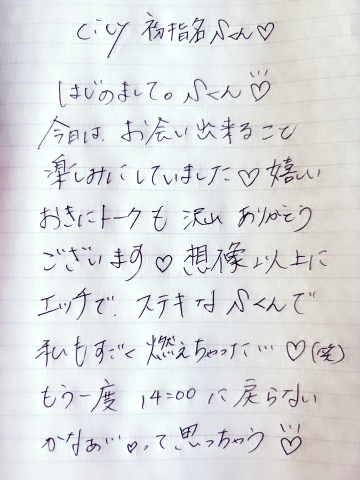 City 初指名Sくん♡
はじめまして。Sくん♡
今日は、お会い出来ること
楽しみにしていました♡嬉しい
おきにトークも沢山ありがとう
ございます♡想像以上に
エッチで、ステキなSくんで
私もすごく燃えちゃった…♡(笑)
もう一度 14:00 に戻らない
かなぁ…♡って思っちゃう♡